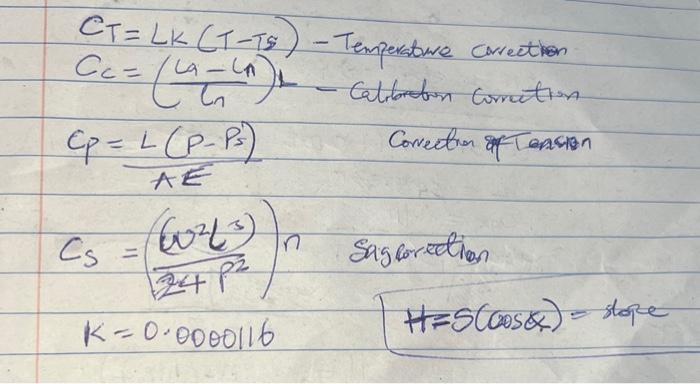 CT = LK (T - Ts) - Temperature correction
Cc = ((La - Ln) / Ln) L - Calibration correction
Cp = L (P - Ps) / AE Correction of Tension
Cs = ((W²L³) / 24 P²) n Sag correction
K = 0.0000116 H = S(cos α) = slope